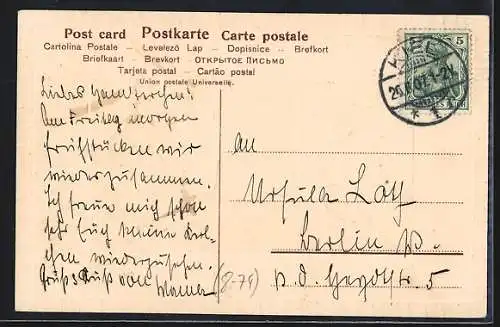 Post card Postkarte Carte postale
Cartolina Postale – Levelező Lap – Dopisnice – Brefkort
Briefkaart – Brevkort – ОТКРЫТОЕ ПИСЬМО
Tarjeta postal – Cartão postal
Union postale Universelle.
5
KIEL
1
Liebes
Am Freitag morgen
frühstücken wir
wieder zusammen.
Ich freue mich schon
sehr Euch meine
wiederzusehen.
Gruß Kuß von
(8-79)
An
Ursula Loty
Berlin W.
v. d. Heydtstr. 5